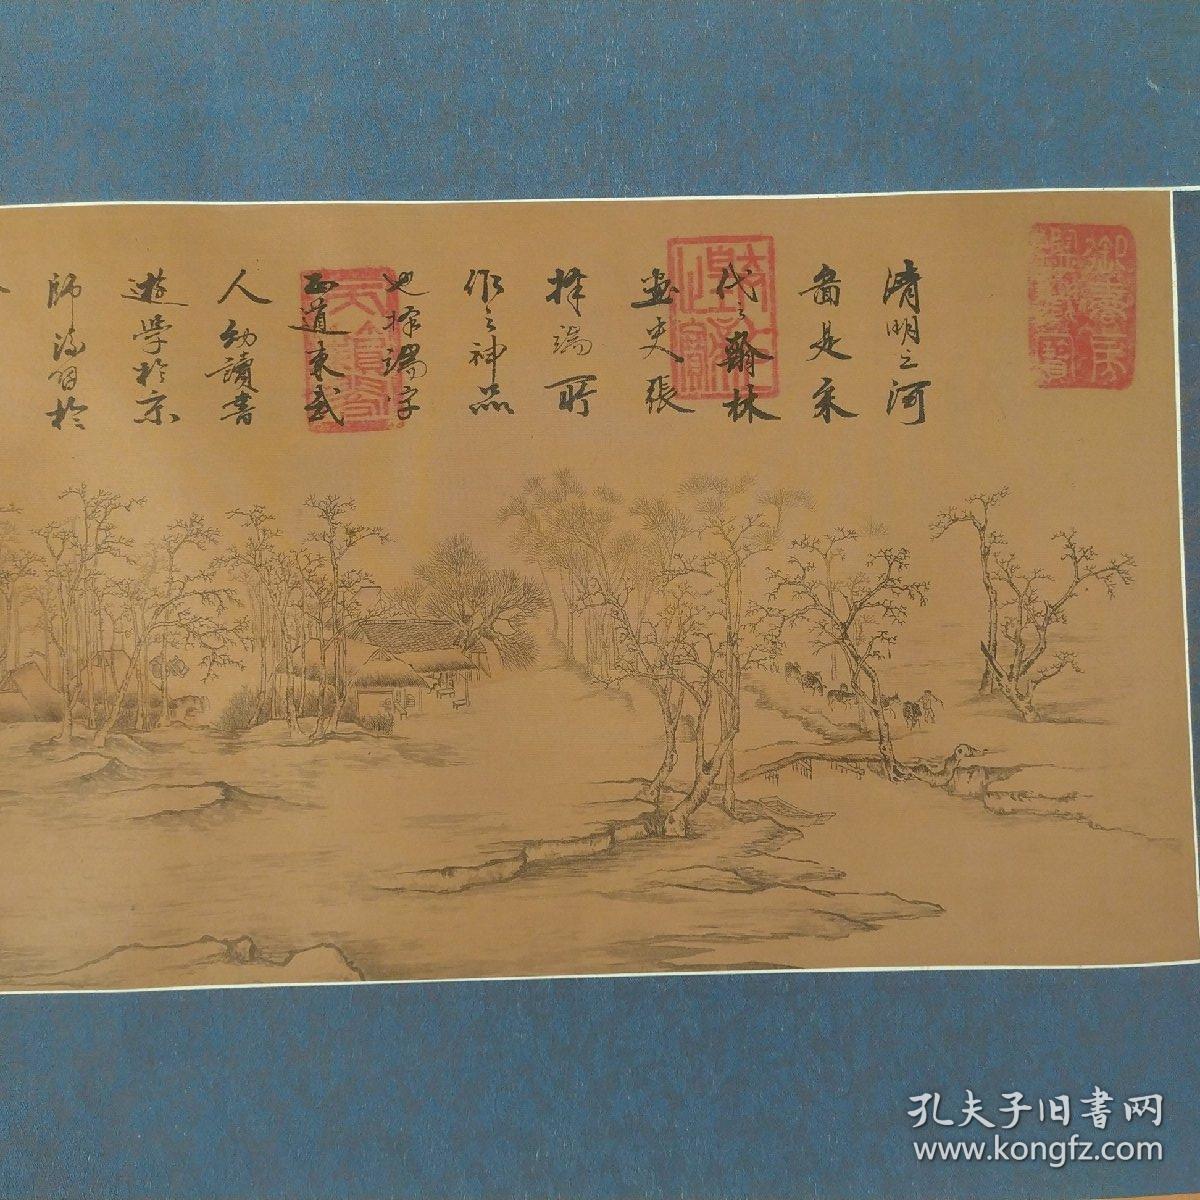 清明之河
畫是宋
代之翰林
畫史張
擇端所
作之神品
也擇端字
正道東武
人幼讀書
遊學於京
師後習於
孔夫子旧書网
www.kongfz.com